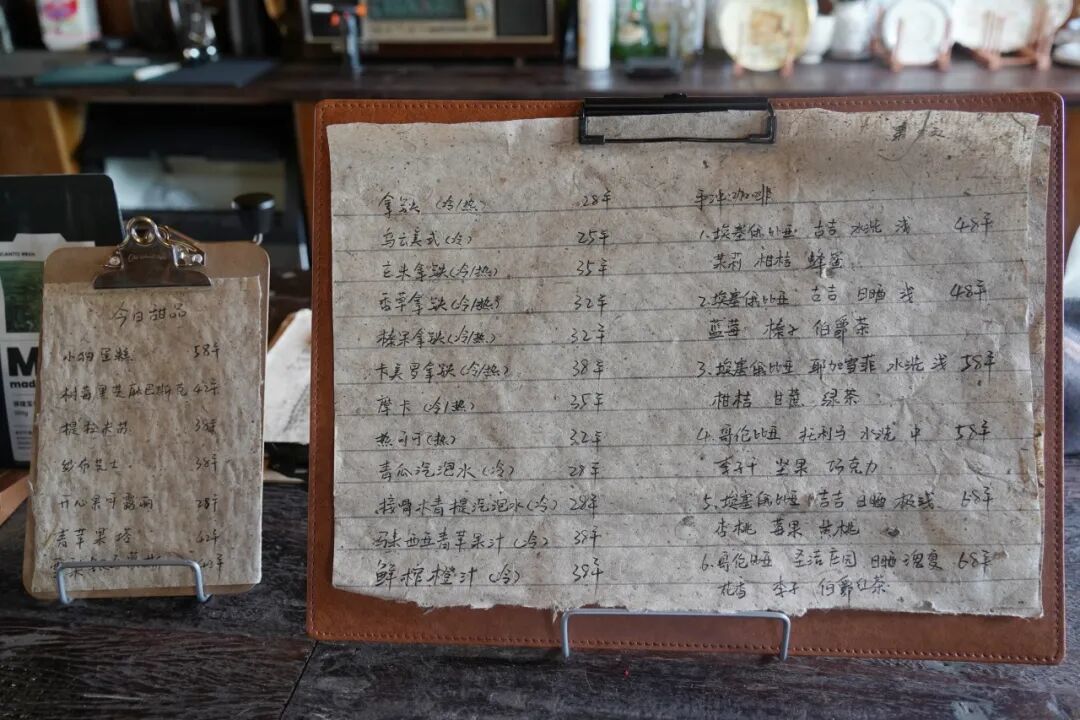 今日甜品
小狗蛋糕 58年
树莓黑芝麻巴斯克 42年
提拉米苏 38年
纱布芝士 38年
开心果可露丽 28年
青苹果塔 42年
拿铁 (冷/热) 28年
乌云美式 (冷) 25年
燕麦拿铁 (冷/热) 35年
香草拿铁 (冷/热) 32年
榛果拿铁 (冷/热) 32年
卡美罗拿铁 (冷/热) 38年
摩卡 (冷/热) 35年
热可可 (热) 32年
青瓜汽泡水 (冷) 28年
接骨木青提汽泡水 (冷) 28年
马来西亚青苹果汁 (冷) 39年
鲜榨橙汁 (冷) 39年
手冲咖啡
1. 埃塞俄比亚 古吉 水洗 浅 48年
茉莉 柑桔 蜂蜜
2. 埃塞俄比亚 古吉 日晒 浅 48年
蓝莓 榛子 伯爵茶
3. 埃塞俄比亚 耶加雪菲 水洗 浅 58年
柑桔 甘蔗 绿茶
4. 哥伦比亚 托利马 水洗 中 58年
李子汁 坚果 巧克力
5. 埃塞俄比亚 古吉 日晒 极浅 68年
杏桃 莓果 黄桃
6. 哥伦比亚 圣洁庄园 日晒 瑰夏 68年
花香 李子 伯爵红茶